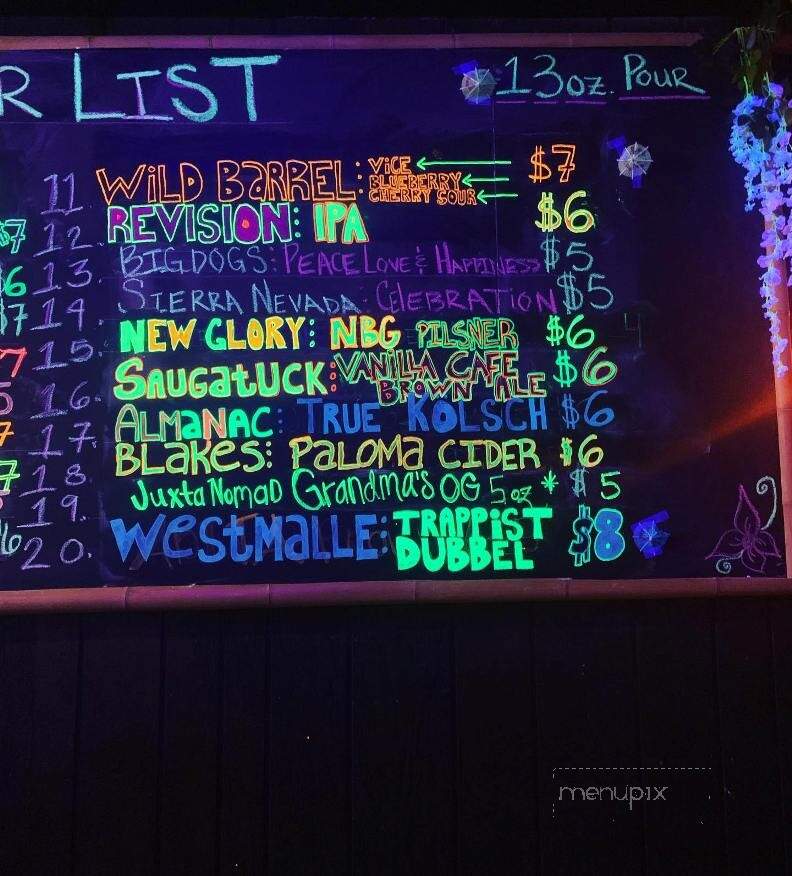 R LIST 13oz. POUR
11 WILD BARREL: VICE BLUEBERRY CHERRY SOUR $7
12. REVISION: IPA $6
$7 13. BIGDOGS: PEACE LOVE & HAPPINESS $5
6 14. SIERRA NEVADA: CELEBRATION $5
$7 15. NEW GLORY: NBG PILSNER $6
7 16. SAUGATUCK: VANILLA CAFE BROWN ALE $6
5 17. ALMANAC: TRUE KOLSCH $6
7 18. BLAKES: PALOMA CIDER $6
7 19. JuxtaNomaD Grandma's OG 5oz * $5
6 20. WESTMALLE: TRAPPIST DUBBEL $8
menupix